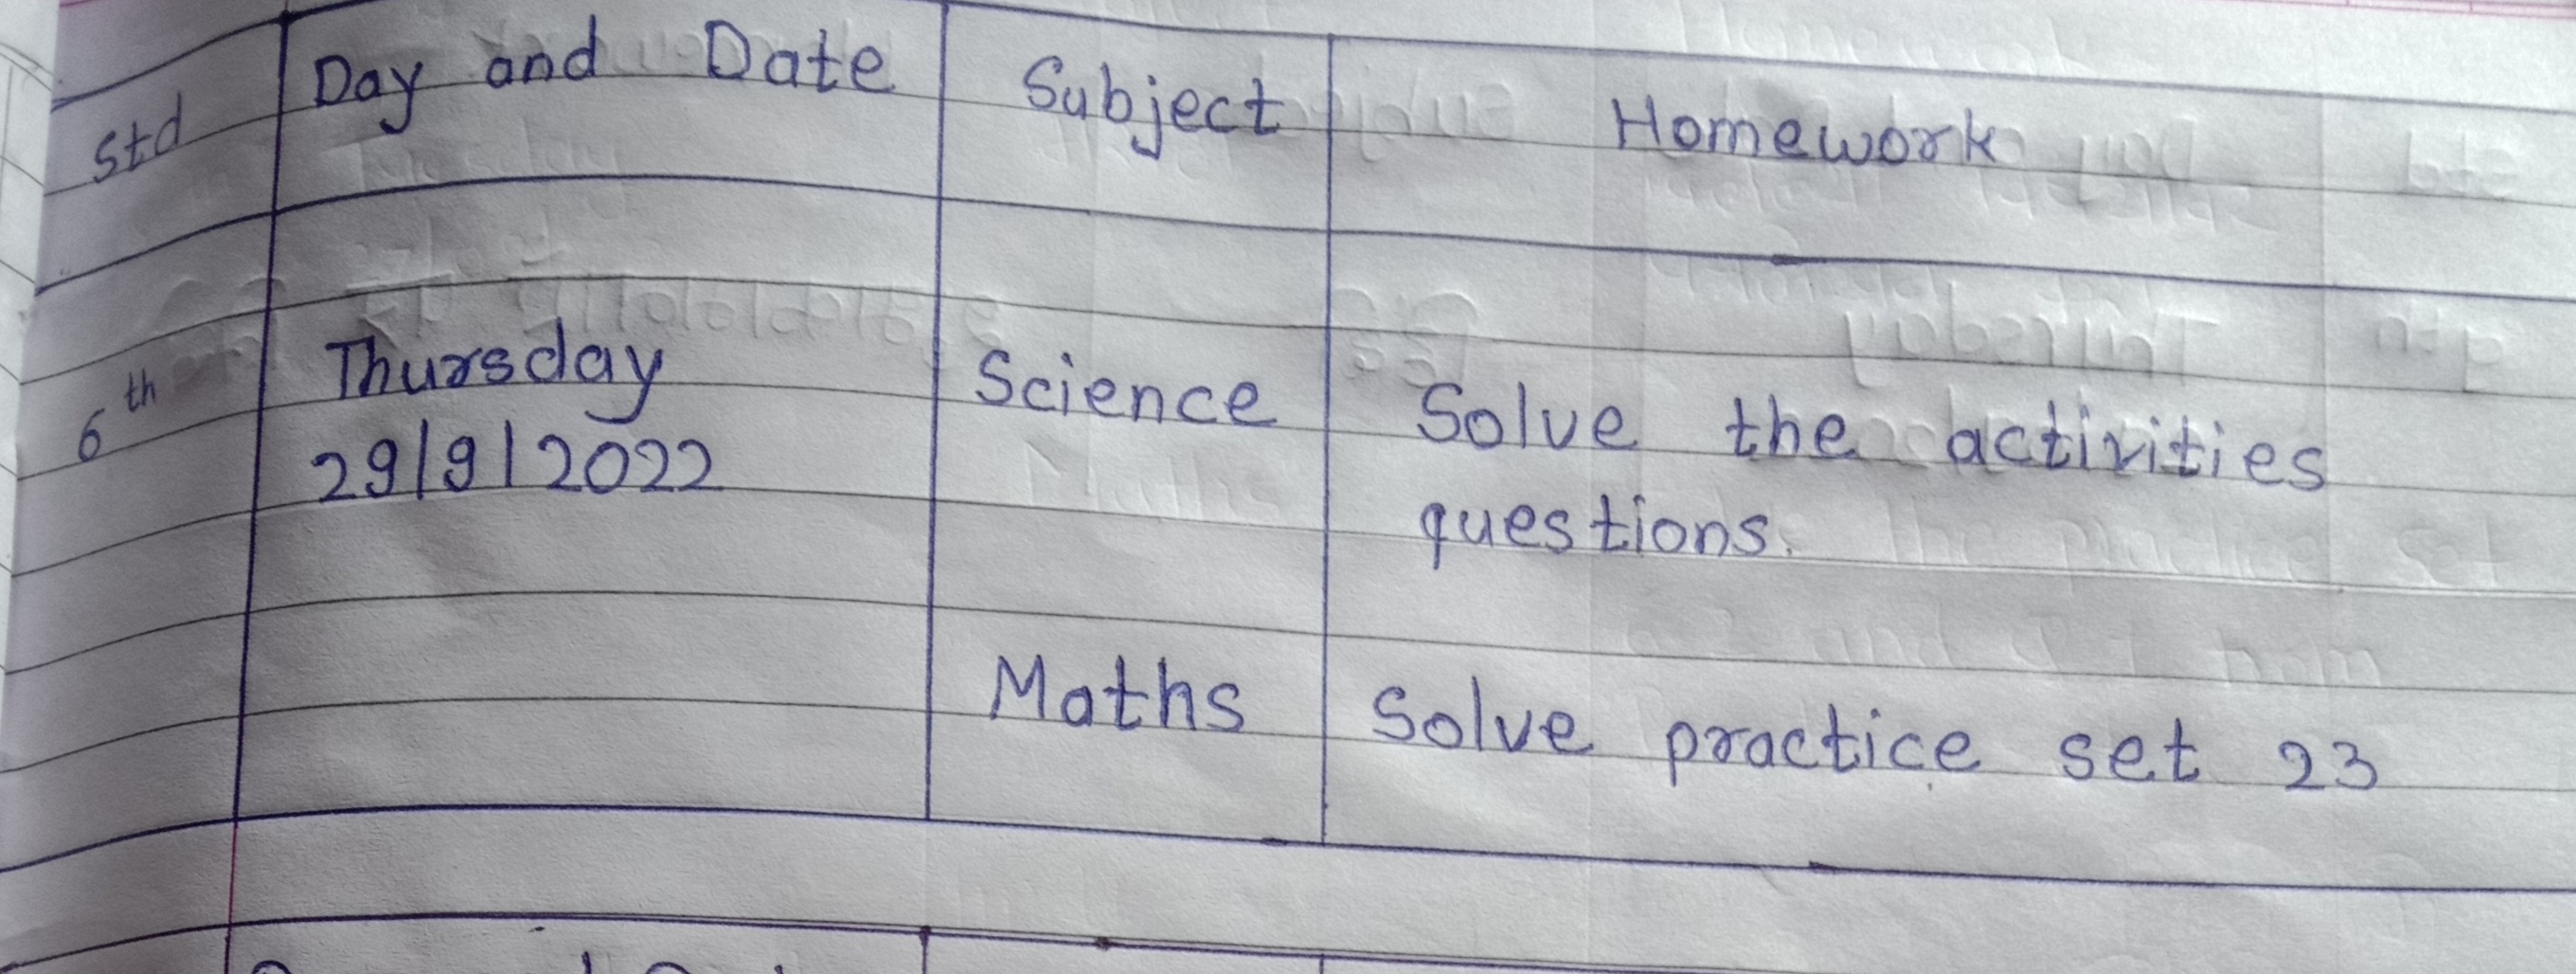 Std Day and Date Subject Homework
6th Thursday Science Solve the activities
29/9/2022 questions.
Maths Solve practice set 23